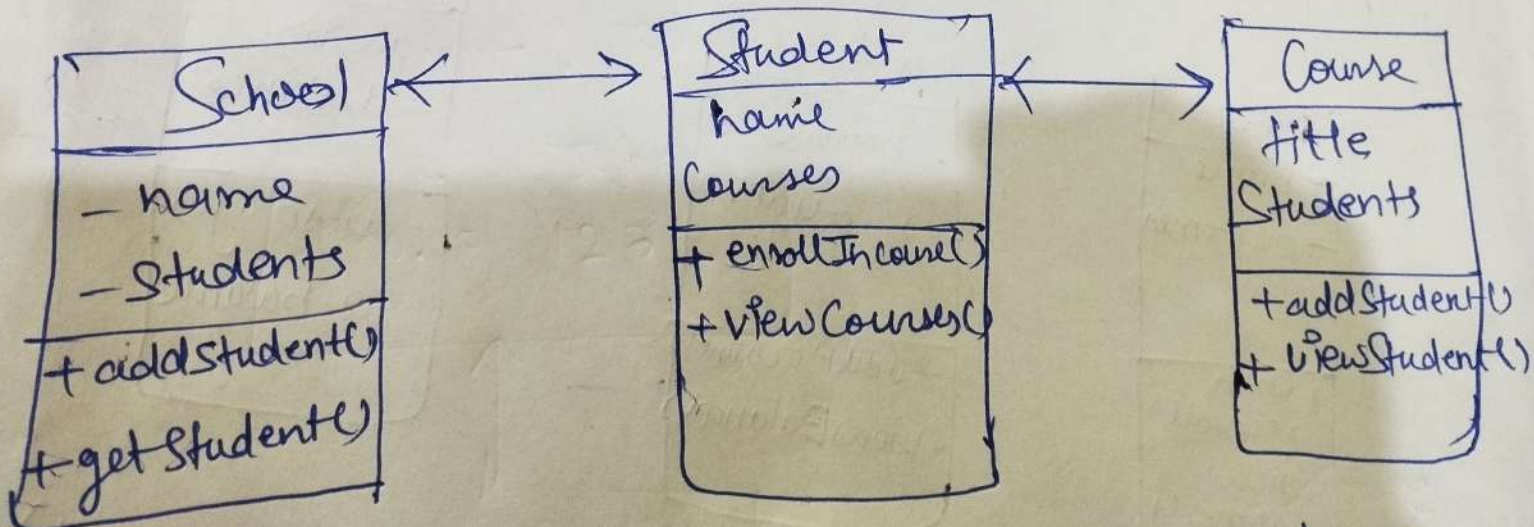 School
- name
- Students
+ addstudent()
+ getStudent()
Student
name
Courses
+ enrollIncourse()
+ viewCourses()
Course
title
Students
+ addStudent()
+ viewStudent()